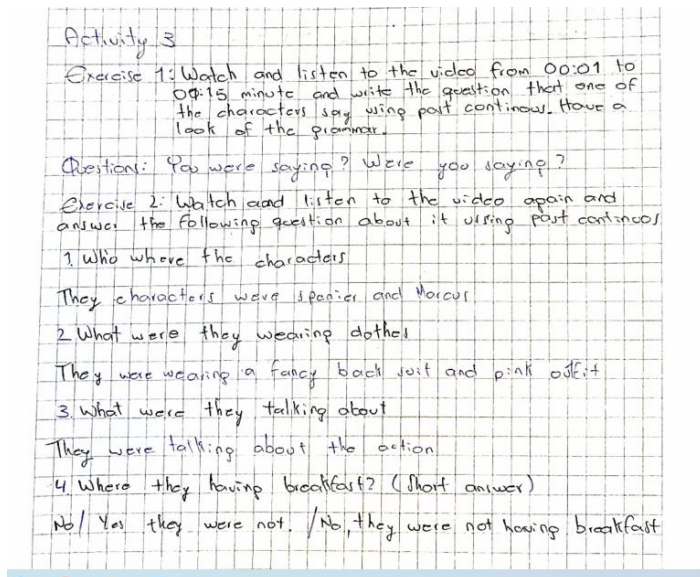 Activity 3
Exercise 1: Watch and listen to the video from 00:01 to
00:15 minute and write the question that one of
the characters say using past continous. Have a
look of the grammar.
Questions: You were saying? Were you saying?
Exercise 2: Watch and listen to the video again and
answer the following question about it using past continuos
1. Who where the characters
They characters were spanier and Marcus
2 What were they wearing clothes
They were wearing a fancy back suit and pink outfit
3. What were they talking about
They were talking about the action
4 Where they having breakfast? (Short answer)
No/ Yes they were not. /No, they were not having breakfast